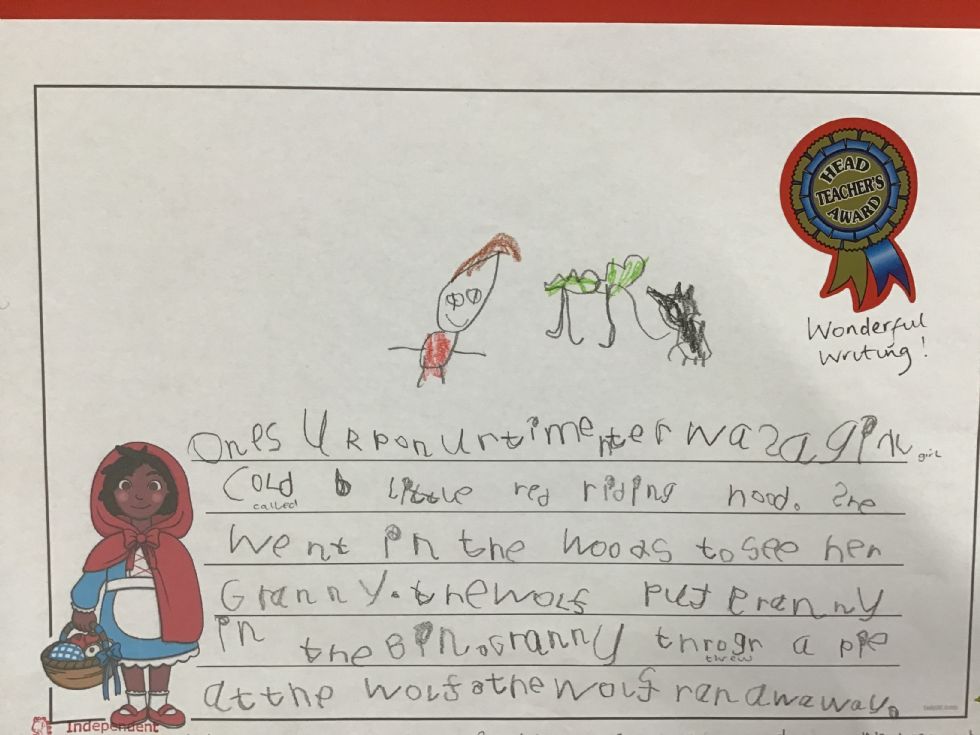 HEAD
TEACHER'S
AWARD
Wonderful
Writing!
Ones Urpon Urtime ter waz a girl girl
Cold little red riding hood. She
called
Went in the woods to see her
Granny. the wolf put Granny
in the Bin. Granny throgh a pie
threw
at the wolf. the wolf ran awaway.
Independent